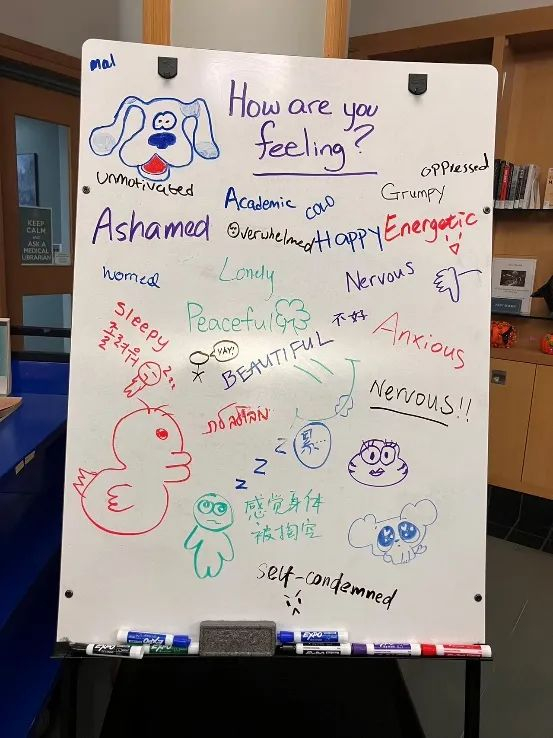 mal
How are you
feeling?
oppressed
unmotivated
Academic
cold
Grumpy
Ashamed
overwhelmed
Happy
Energetic
KEEP
CALM
AND
ASK A
MEDICAL
LIBRARIAN
worried
Lonely
Nervous
Sleepy
Peaceful
不好
Anxious
YAY!
BEAUTIFUL
Nervous!!
累...
z
z
z
感觉身体
被掏空
self-condemned
EXPO
EXPO
EXPO
EXPO
EXPO
EXPO